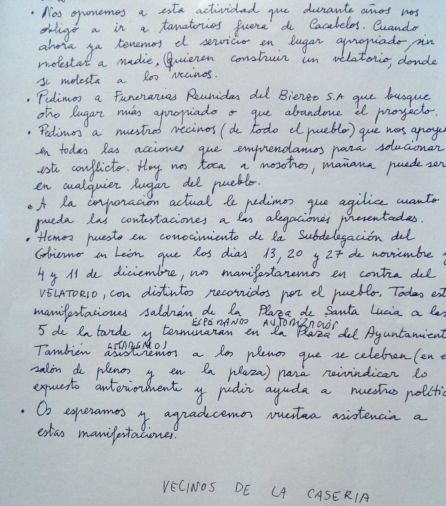 • Nos oponemos a esta actividad que durante años nos
obligó a ir a tanatorios fuera de Cacabelos. Cuando
ahora ya tenemos el servicio en lugar apropiado sin
molestar a nadie, Quieren construir un velatorio, donde
se molesta a los vecinos.
• Pedimos a Funerarias Reunidas del Bierzo S.A que busque
otro lugar más apropiado o que abandone el proyecto.
• Pedimos a nuestros vecinos (de todo el pueblo) que nos apoye
en todas las acciones que emprendamos para solucionar
este conflicto. Hoy nos toca a nosotros, mañana puede ser
en cualquier lugar del pueblo.
• A la corporación actual le pedimos que agilice cuanto
pueda las contestaciones a las alegaciones presentadas.
• Hemos puesto en conocimiento de la Subdelegación del
Gobierno en León que los dias 13, 20 y 27 de noviembre
4 y 11 de diciembre, nos manifestaremos en contra del
VELATORIO, con distintos recorridos por el pueblo. Todas est
manifestaciones saldrán de la Plaza de Santa Lucia a las
ESPERAMOS AUTORIZACIÓN
5 de la tarde y terminarán en la Plaza del Ayuntamient
También asistiremos a los plenos que se celebren (en e
salón de plenos y en la plaza) para reivindicar lo
expuesto anteriormente y pedir ayuda a nuestros politic
• Os esperamos y agradecemos vuestra asistencia a
estas manifestaciones.
VECINOS DE LA CASERIA